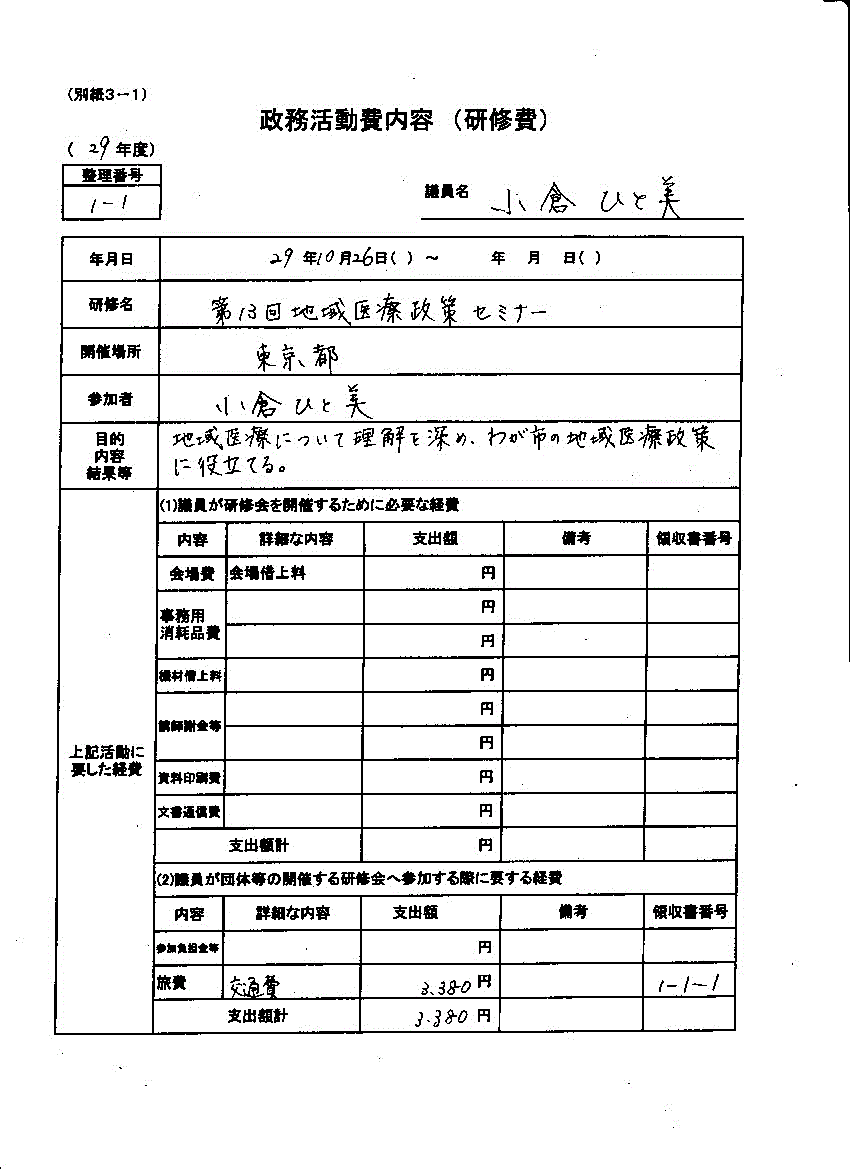 （別紙３－１）
政務活動費内容（研修費）
（ 29 年度）
整理番号
1-1
議員名 小倉 ひと美
年月日 29年10月26日（ ）～ 年 月 日（ ）
研修名 第13回地域医療政策セミナー
開催場所 東京都
参加者 小倉 ひと美
目的
内容
結果等
地域医療について理解を深め、わが市の地域医療政策
に役立てる。
上記活動に
要した経費
(1)議員が研修会を開催するために必要な経費
内容 詳細な内容 支出額 備考 領収書番号
会場費 会場借上料 円
事務用
消耗品費
円
円
機材借上料 円
講師謝金等
円
円
資料印刷費 円
文書通信費 円
支出額計 円
(2)議員が団体等の開催する研修会へ参加する際に要する経費
内容 詳細な内容 支出額 備考 領収書番号
参加負担金等 円
旅費 交通費 3.380円 1-1-1
支出額計 3.380 円